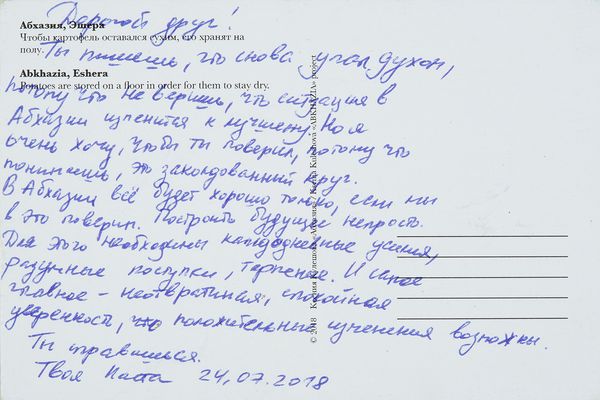 Дорогой друг!
Абхазия, Эшера
Чтобы картофель оставался сухим, его хранят на
полу.
Ты пишешь, что снова упал духом,
Abkhazia, Eshera
Potatoes are stored on a floor in order for them to stay dry.
потому что не веришь, что ситуация в
Абхазии изменится к лучшему. Но я
очень хочу, чтобы ты поверил, потому что
понимаешь, это заколдованный круг.
В Абхазии всё будет хорошо только, если мы
в это поверим. Построить будущее непросто.
Для этого необходимы каждодневные усилия,
разумные поступки, терпение. И самое
главное - неотвратимая, спокойная
уверенность, что положительные изменения возможны.
Ты справишься.
Твоя 24.07.2018
© 2018 Ксения Кулешова «Абхазия» / Ksenia Kuleshova «ABKHAZIA» project